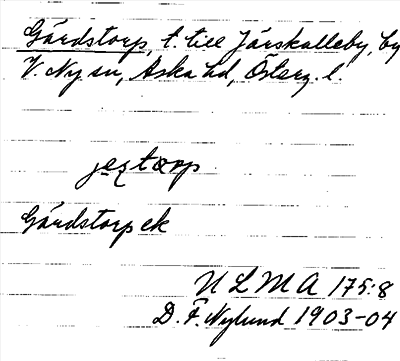 Gärdstorp, t. till Järskalleby, by
V. Ny sn, Aska hd, Österg. l.
jeʐtɷrp
Gärdstorp ek
ULMA 175:8
D. F. Nylund 1903-04